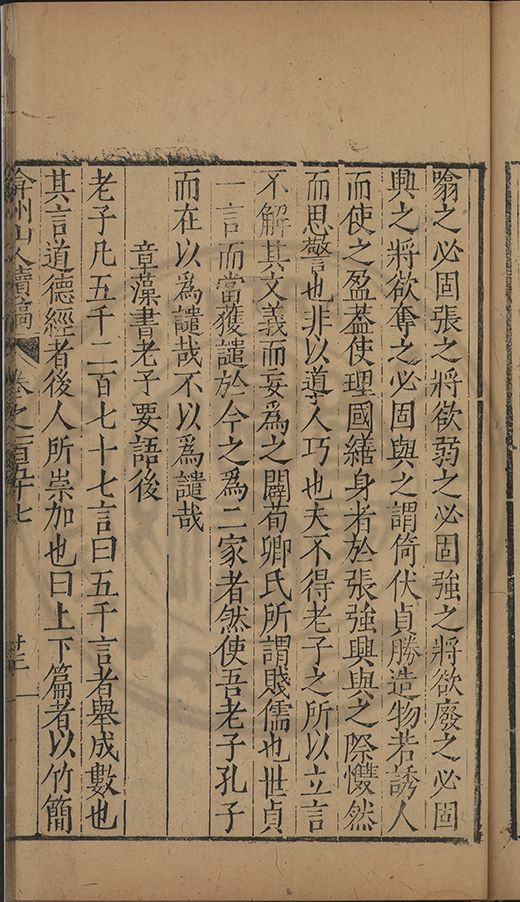 噏之必固張之將欲弱之必固強之將欲廢之必固
興之將欲奪之必固與之謂倚伏貞勝造物若誘人
而使之盈葢使理國繕身者於張強興與之際戄然
而思警也非以道人巧也夫不得老子之所以立言
不解其文義而妄為之闢荀卿氏所謂賤儒也世貞
一言而當獲譴於今之為二家者然使吾老子孔子
而在以為譴哉不以為譴哉
章藻書老子要語後
老子凡五千二百七十七言曰五千言者舉成數也
其言道德經者後人所崇加也曰上下篇者以竹簡
弇州山人續稿 卷之一百五十七 廿三